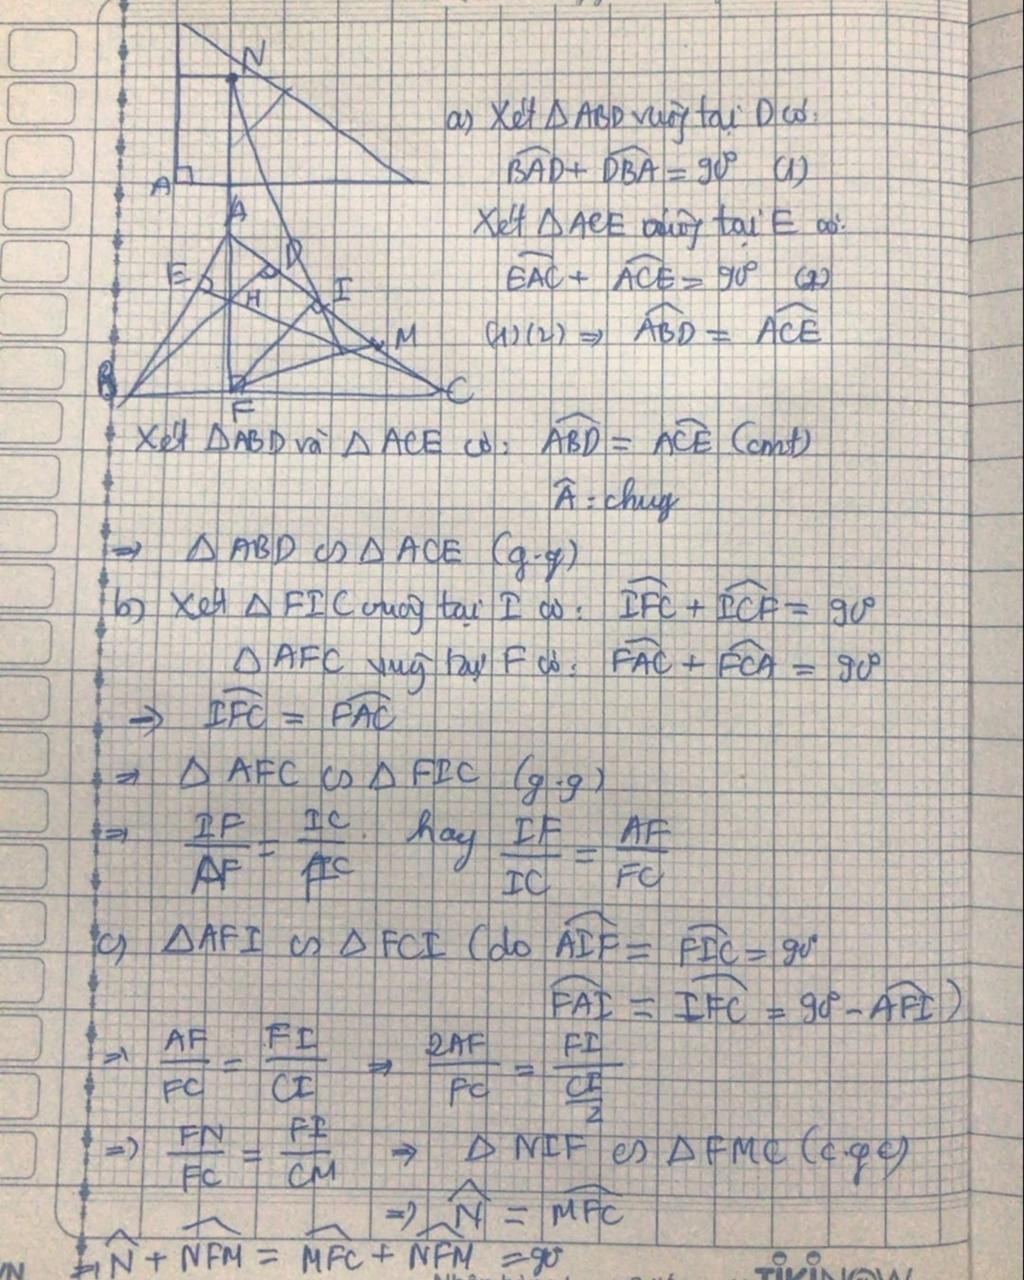 N
A
A
E
D
H
I
M
B
F
C
a) Xét △ABD vuông tại D có:
B̂AD + D̂BA = 90° (1)
Xét △ACE vuông tại E có:
ÊAC + ÂCE = 90° (2)
(1)(2) ⇒ ÂBD = ÂCE
Xét △ABD và △ACE có: ÂBD = ÂCE (cmt)
Â: chung
⇒ △ABD ∽ △ACE (g.g)
b) Xét △FIC vuông tại I có: ÎFC + ÎCF = 90°
△AFC vuông tại F có: F̂AC + F̂CA = 90°
⇒ ÎFC = F̂AC
⇒ △AFC ∽ △FIC (g.g)
⇒ IF/AF = IC/FC hay IF/IC = AF/FC
c) △AFI ∽ △FCI (do ÂIF = F̂IC = 90°
F̂AI = ÎFC = 90° - ÂFI)
⇒ AF/FC = FI/CI ⇒ 2AF/FC = FI/(CI/2)
⇒ FN/FC = FI/CM ⇒ △NIF ∽ △FMC (c.g.c)
⇒ N̂ = M̂FC
⇒ N̂ + N̂FM = M̂FC + N̂FM = 90°
TIKINOW